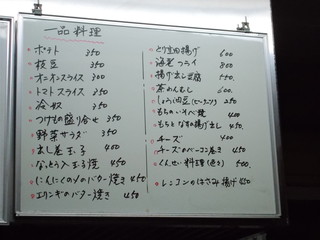 一品料理
ポテト 350
枝豆 350
オニオンスライス 300
トマトスライス 350
冷奴 350
つけもの盛り合せ 350
野菜サラダ 350
出し巻玉子 400
なっとう入玉子焼 450
にんにくのメのバター焼き 450
エリンギのバター焼き 450
とり唐揚げ 600
海老フライ 800
揚げ出し豆腐 550
茶わんむし 600
しょうが肉豆(ピーナツ) 250
もちのいそべ焼 400
もちとなすの揚げ出し 450
チーズ 400
チーズのベーコン巻き 450
くんせい料理(色々) 500
レンコンのはさみ揚げ 450